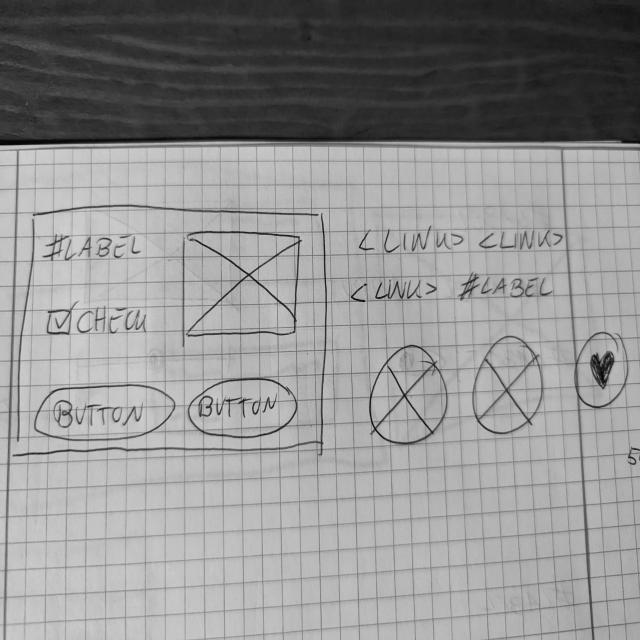 #LABEL
☑ CHECK
BUTTON BUTTON
<LINK> <LINK>
<LINK> #LABEL
5